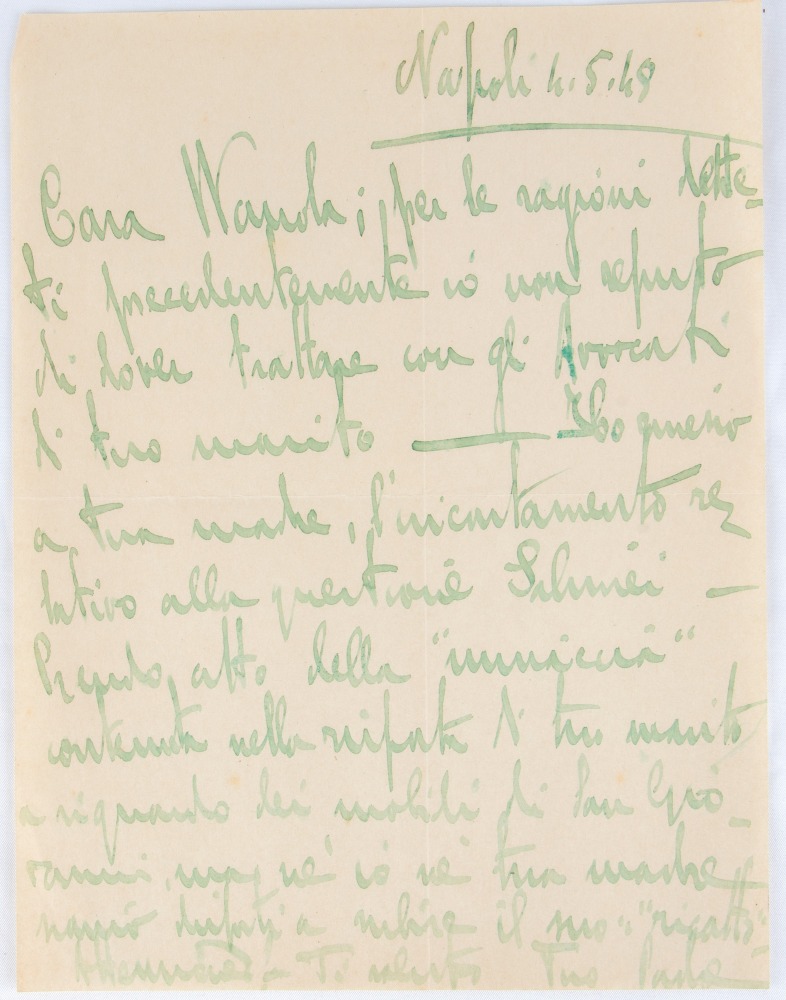 Napoli 4.5.48
Cara Wanda; per le ragioni dette-
ti precedentemente io non reputo
di dover trattare con gli Avvocati
di tuo marito —
a tua madre, l'incartamento re
lativo alla questione —
Prendo atto della "minaccia"
contenuta nella di tuo marito
a riguardo dei mobili di San Gio-
vanni, ma nè io nè tua madre
siamo disposti a subire il suo "ricatto"
Ti saluto Tuo Padre